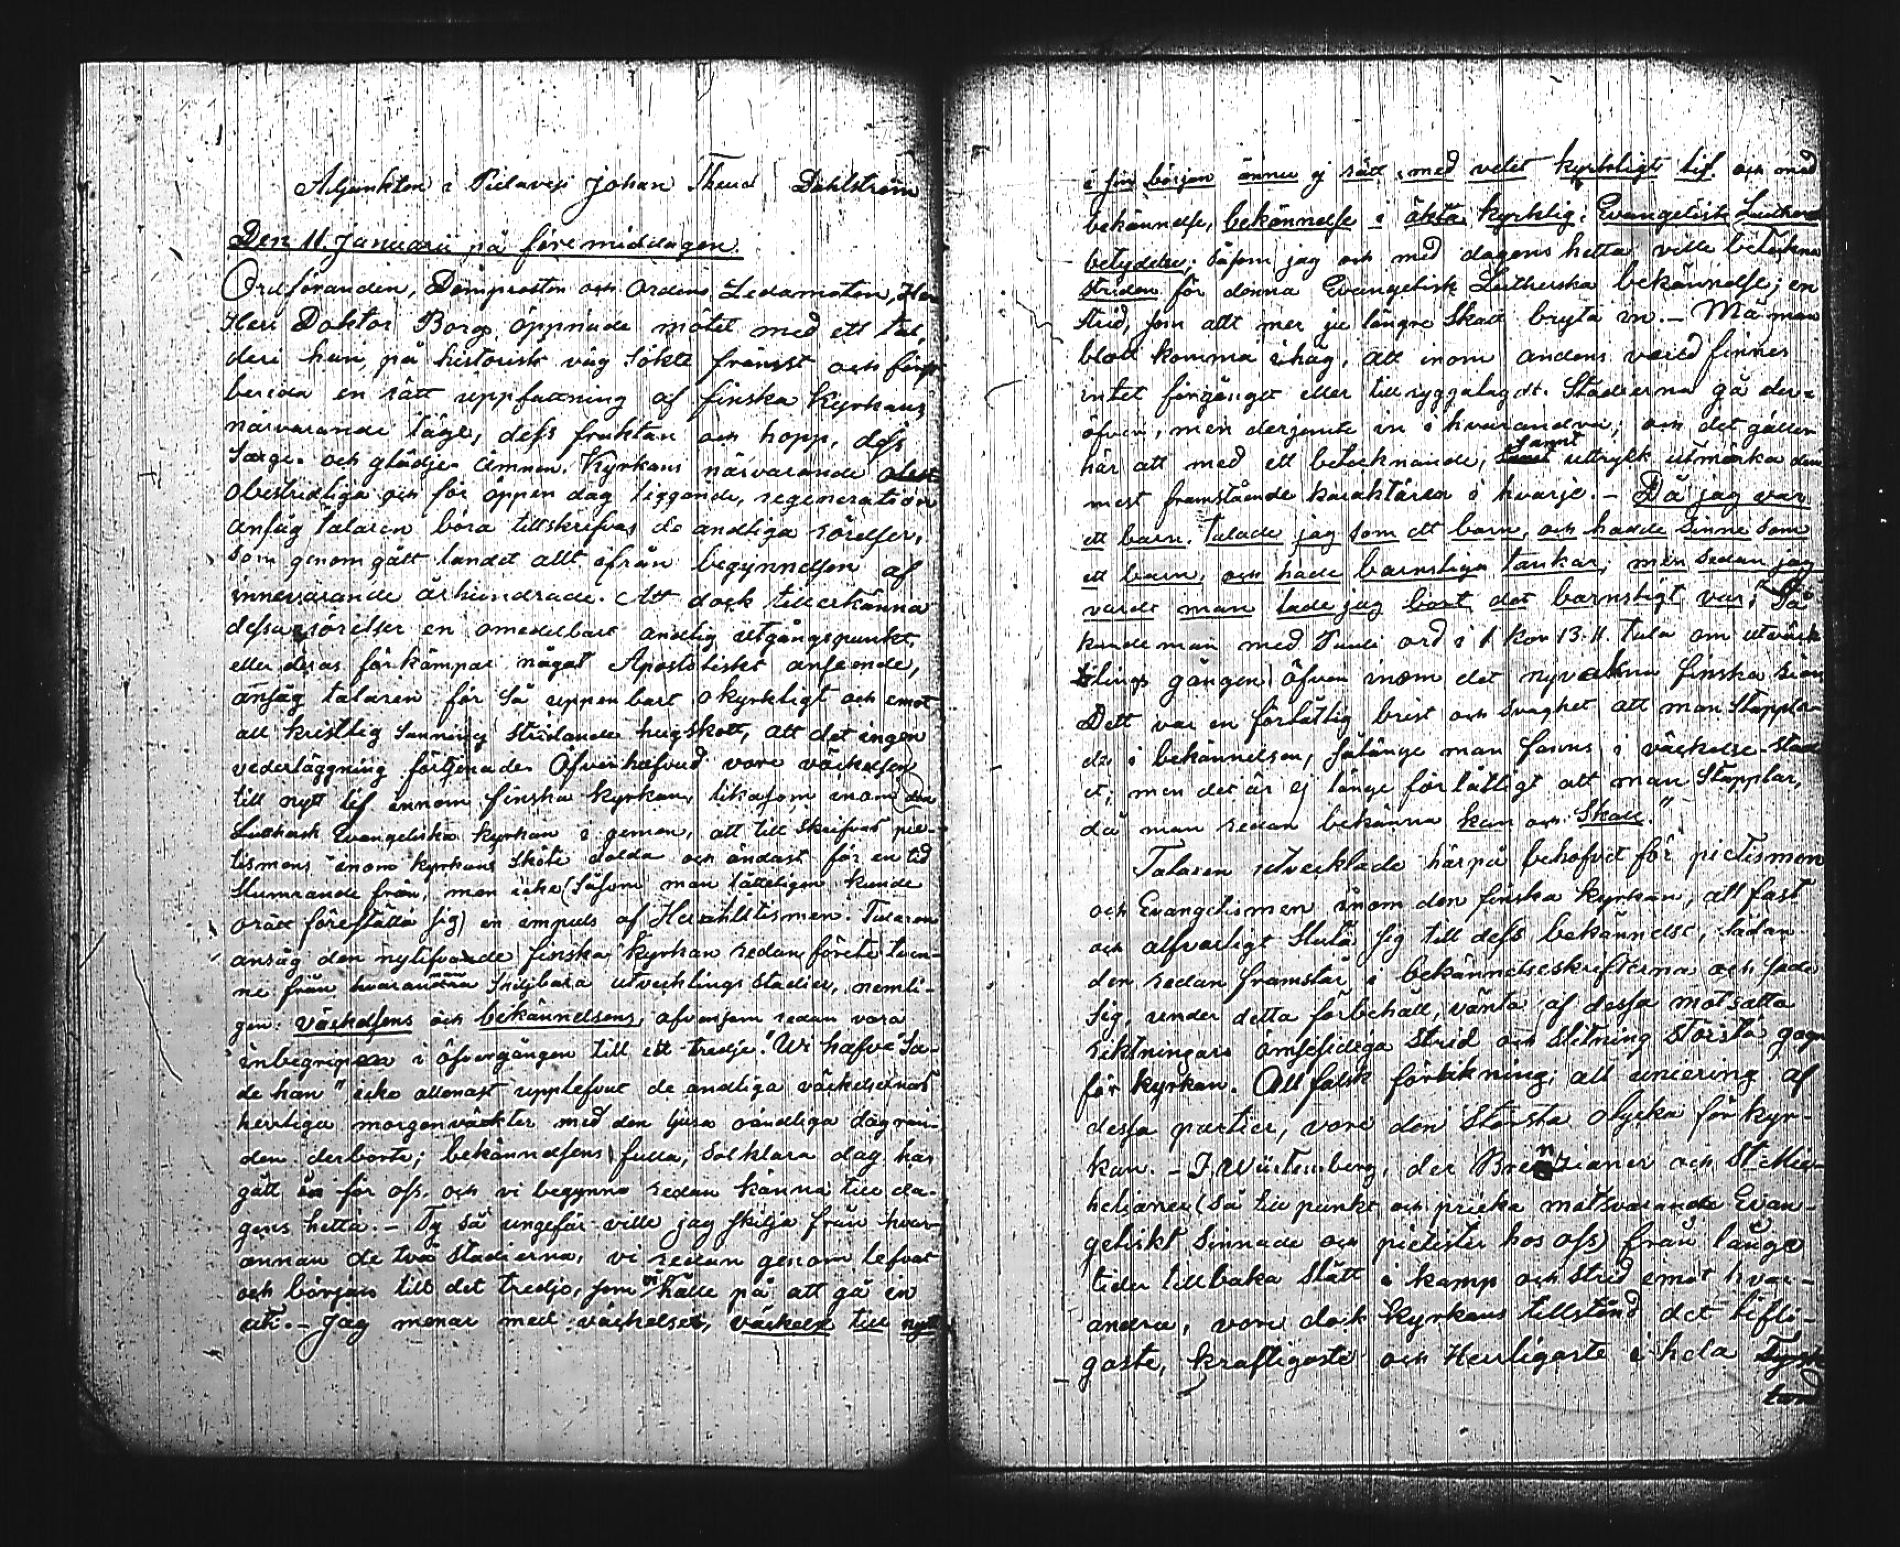 Adjunkten i Pielavesi Johan Theod. Dahlström
Den 11. Januarii på föremiddagen.
Ordföranden, Domprosten och Ordens Ledamoten, Her
Herr Doktor Borgs öppnade mötet med ett tal,
deri han, på historisk väg sökte främst och först
bereda en rätt uppfattning af finska Kyrkans
närvarande läge, dess fruktan och hopp, dess
Sorge- och glädje- ämnen. Kyrkans närvarande
obestridliga och för öppen dag liggande, regeneration
ansåg talaren böra tillskrifvas de andliga rörelser,
som genomgått landet allt ifrån begynnelsen af
innevarande århundrade. Att dock tillerkänna
dessa rörelser en omedelbart andlig utgångspunkt,
eller deras förkämpar något Apostoliskt anseende,
ansåg talaren för så uppenbart okyrkligt och emot
all kristlig Sanning stridande hugskott, att det ingen
vederläggning förtjenade. Öfverhufvud vore väckelsen
till nytt lif innom finska kyrkan, likasom inom den
Luthersk Evangeliska kyrkan i gemen, att tillskrifvas pie-
tismens inom kyrkans sköte dolda och endast för en tid
slumrande frön, men icke (såsom man lätteligen kunde
orätt föreställa sig) en impuls af Herrnhutismen. Talaren
ansåg den nylifvade finska kyrkan redan förete tven-
ne från hvarandra skiljbara utvecklings stadier, nemli-
gen: väckelsens och bekännelsens, afvensom redan vara
inbegripen i öfvergången till ett tredje. "Wi hafve" sa-
de han "icke allenast upplefvat de andliga väckelsernas
herrliga morgonväkter med den ljusa oändliga dagran-
den derborte; bekännelsens fulla, solklara dag har
gått in för oss, och vi begynna redan känna till da-
gens hetta. - Ty så ungefär ville jag skilja från hvar-
annan de två stadierna, vi redan genomlefvat
och början till det tredje, som vi hålle på att gå in
uti. - Jag menar med väckelser, väckelse till nytt
i sin början ännu ej rätt med vetet kyrkligt lif och med
bekännelse, bekännelse i äkta kyrklig: Evangelisk Luthersk
betydelse; såsom jag och med dagens hetta ville beteckna
striden för denna Evangelisk Lutherska bekännelse; en
strid, som allt mer ju längre skall bryta in. - Må man
blott komma ihåg, att inom andens verld finnes
intet förgånget eller tillryggalagdt. Stadierna gå der-
öfver, men derjemte in i hvarandra; och det gäller
här att med ett betecknande, sannt uttryck utmärka den
mest framstående karaktären i hvarje. - Då jag var
ett barn, talade jag som ett barn, och hade sinne som
ett barn, och hade barnsliga tankar; men sedan jag
vardt man lade jag bort det barnsligt var." Så
kunde man med Pauli ord i 1 Kor 13.11. tala om utveck-
lings gången äfven inom det nyvakna finska Sion
Dett var en förlåtlig brist och svaghet att man stappla-
de i bekännelsen, sålänge man fanns i väckelse-stadi
et; men det är ej länge förlåtligt att man stapplar,
då man redan bekänna kan och skall."
Talaren utvecklade härpå behofvet för pietismen
och Evangelismen inom den finska kyrkan, att fast
och alfvarligt sluta sig till dess bekännelse, sådan
den redan framstår i bekännelseskrifterna och sade
sig, under detta förbehåll, vänta af dessa motsatta
riktningars ömsesidiga strid och slitning största gagn
för kyrkan. All falsk förlikning, all uniering af
dessa partier, vore den största olycka för kyr-
kan. - I Würtemberg, der Brenzianer och St Mic-
helianer (så till punkt och pricka motsvarande Evan-
geliskt sinnade och pietister hos oss) från långa
tider tillbaka stått i kamp och strid emot hvar-
andra, vore dock kyrkans tillstånd det lifli-
gaste, kraftigaste och Herrligaste i hela Tysk
land